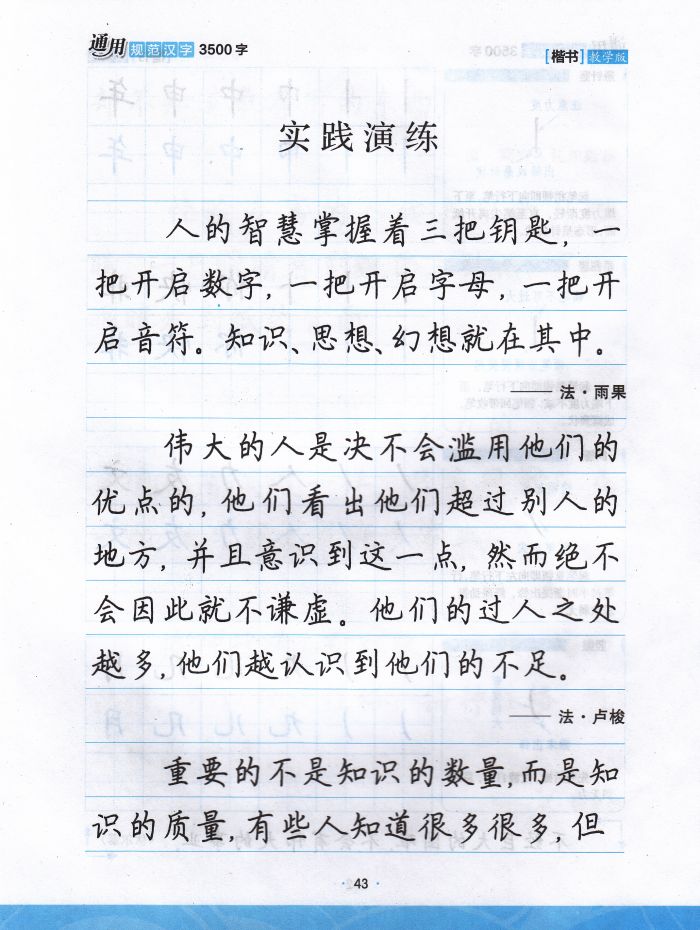 通用规范汉字3500字
[楷书]教学版
实践演练
人的智慧掌握着三把钥匙，一
把开启数字，一把开启字母，一把开
启音符。知识、思想、幻想就在其中。
——法·雨果
伟大的人是决不会滥用他们的
优点的，他们看出他们超过别人的
地方，并且意识到这一点，然而绝不
会因此就不谦虚。他们的过人之处
越多，他们越认识到他们的不足。
——法·卢梭
重要的不是知识的数量，而是知
识的质量，有些人知道很多很多，但
·43·